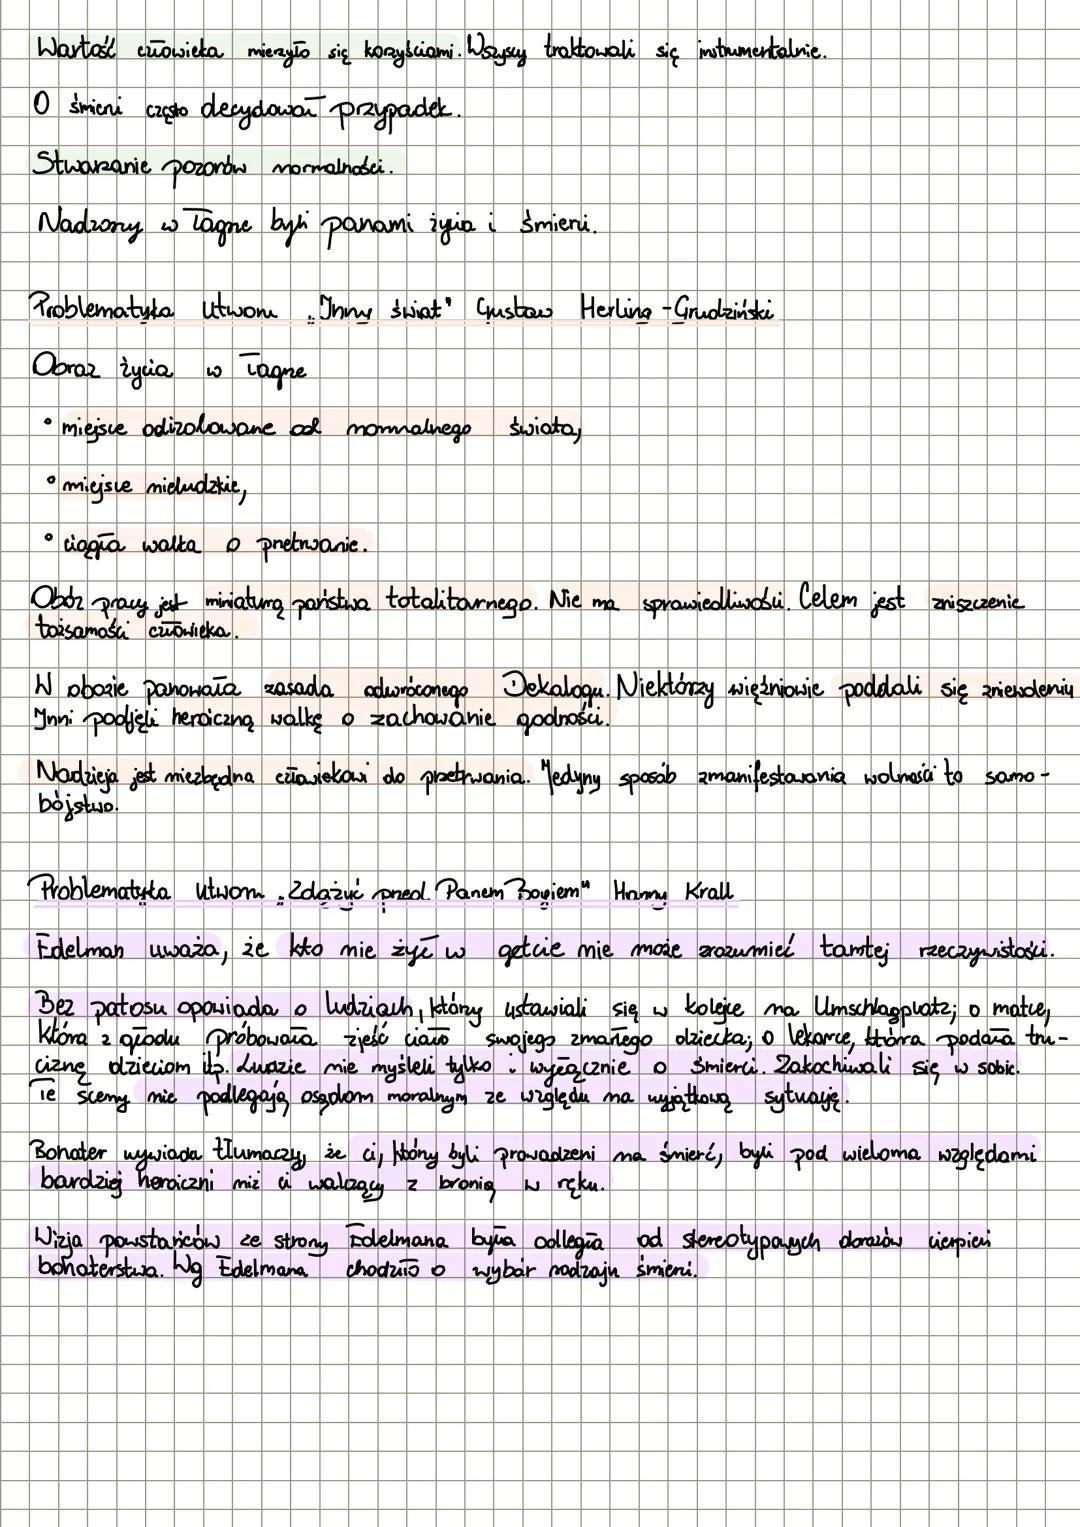 Wartość człowieka mierzyło się korzyściami. Wszyscy traktowali się instrumentalnie.
O śmierci często decydował przypadek.
Stwarzanie pozorów normalności.
Nadzorcy w łagrze byli panami życia i śmierci.
Problematyka utworu „Inny świat" Gustaw Herling-Grudziński
Obraz życia w łagrze
• miejsce odizolowane od normalnego świata,
• miejsce nieludzkie,
• ciągła walka o przetrwanie.
Obóz pracy jest miniaturą państwa totalitarnego. Nie ma sprawiedliwości. Celem jest zniszczenie
tożsamości człowieka.
W obozie panowała zasada odwróconego Dekalogu. Niektórzy więźniowie poddali się zniewoleniu
Inni podjęli heroiczną walkę o zachowanie godności.
Nadzieja jest niezbędna człowiekowi do przetrwania. Jedyny sposób zmanifestowania wolności to samo-
bójstwo.
Problematyka utworu „Zdążyć przed Panem Bogiem" Hanny Krall
Edelman uważa, że kto nie żył w getcie nie może zrozumieć tamtej rzeczywistości.
Bez patosu opowiada o ludziach, którzy ustawiali się w kolejce na Umschlagplatz; o matce,
która z głodu próbowała zjeść ciało swojego zmarłego dziecka; o lekarce, która podała tru-
ciznę dzieciom itp. Ludzie nie myśleli tylko i wyłącznie o śmierci. Zakochiwali się w sobie.
Te sceny nie podlegają osądom moralnym ze względu na wyjątkową sytuację.
Bohater wywiadu tłumaczy, że ci, którzy byli prowadzeni na śmierć, byli pod wieloma względami
bardziej heroiczni niż ci walczący z bronią w ręku.
Wizja powstańców ze strony Edelmana była odległa od stereotypowych obrazów cierpień
bohaterstwa. Wg Edelmana chodziło o wybór rodzaju śmierci.